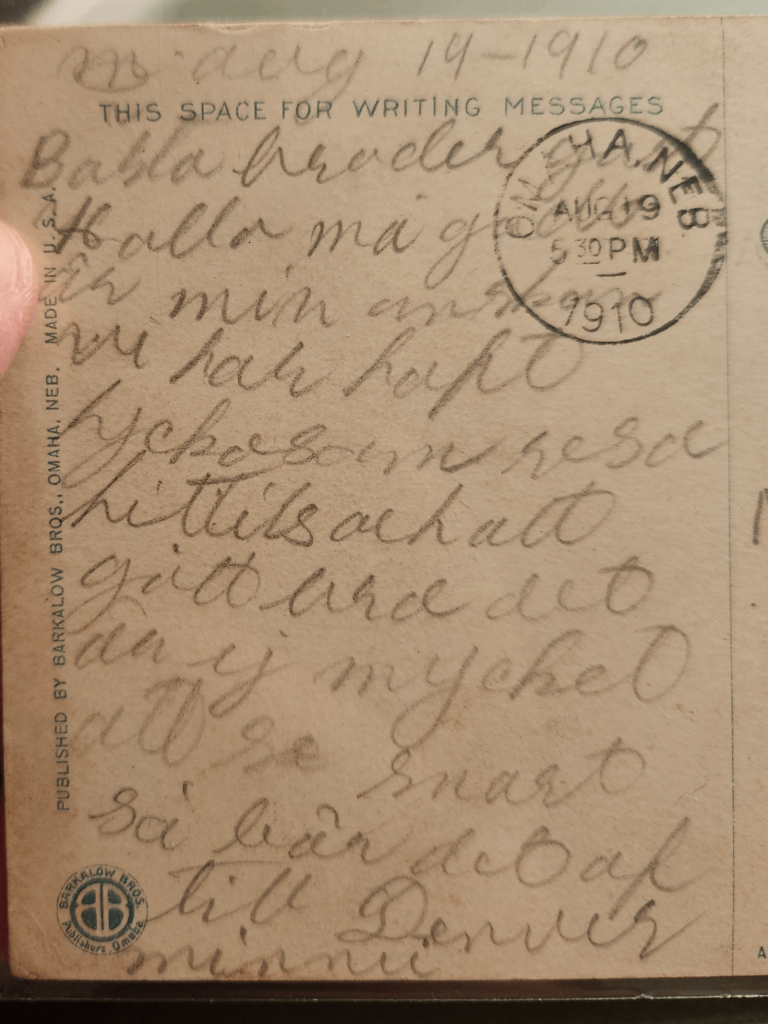 aug 19-1910
THIS SPACE FOR WRITING MESSAGES
OMAHA, NEB
AUG 19
5 30 PM
1910
broder
må
är min önskan
vi har haft
lyckosam resa
hittils och att
gått bra det
än ej mycket
att se snart
så bär det af
till Denver
minnie
MADE IN U. S. A.
PUBLISHED BY BARKALOW BROS., OMAHA, NEB.
BARKALOW BROS.
BB
Publishers, Omaha